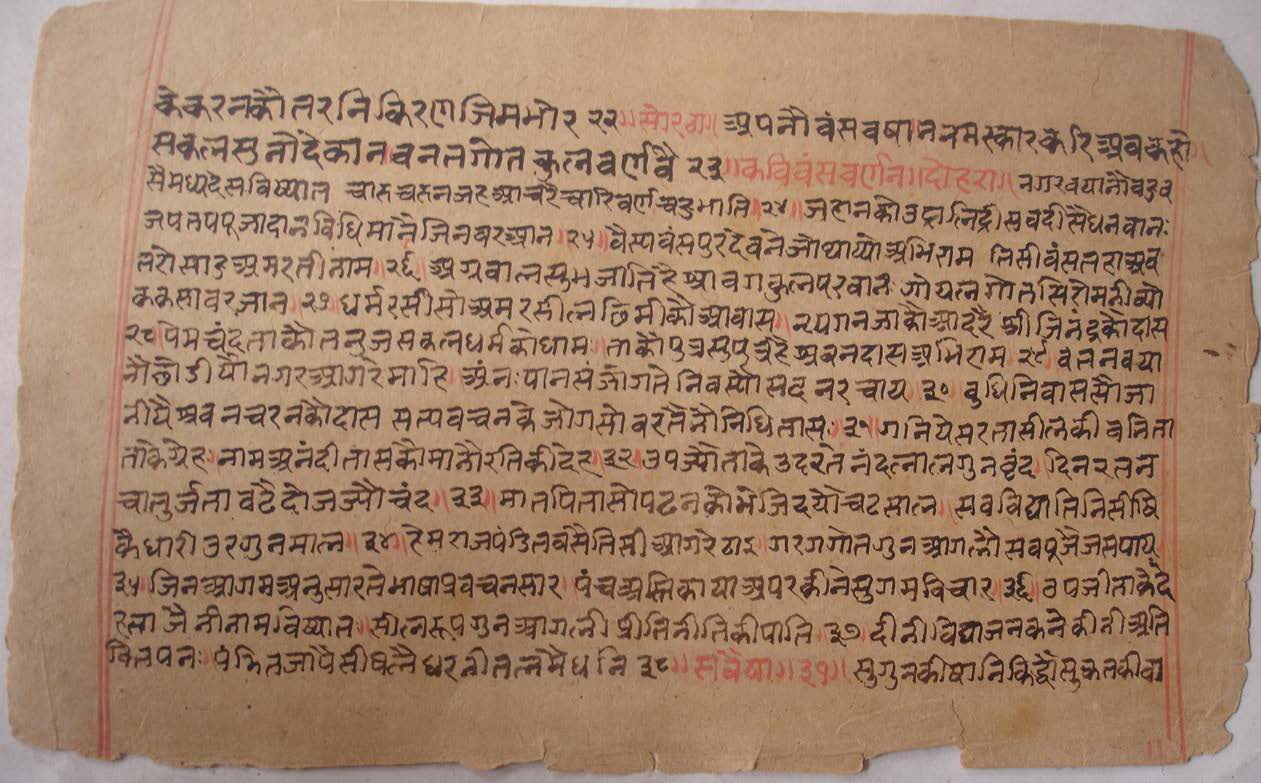 के करन कौ तरनि किरण जिम मोर २२॥ सोरठा॥ अपनौ वंस वषान नमस्कार करि अव कहो॥
सकल सुनौ दे कान चनल गोत कुल वर्णवै २३॥ कवि वंस वर्णन॥ दोहरा॥ नगर वयानौ वहु व
सै मध्य देस विष्यात चारु चरन जह आचरै चारि वर्ण वहु भाति॥२४॥ जहा न को उदालिद्री सव दीसै धनवानः
जप तप पूजा दान विधि मानै जिनवर आन॥२५॥ वैस्य वंस पुरंदेव ने जो थाप्यो अभिराम तिसी वंस तहा अव
तरो साहु अमरसी नाम॥२६॥ अग्रवाल सुभ जाति है श्रावग कुल परवानः गोयल गोत सिरोमनी व्यो
क कसावर जान॥२७॥ धर्मरसी सो अमरसी लछिमी कौ आवास॥ नृपगन जाकौ आदरै श्री जिनंद कौ दास
२८ पेमचंद ताकौ तनुज सकल धर्म कौ धाम॥ ताकौ पुत्र सुपुत्र है श्रवनदास अभिराम २९॥ वतन वया
नौ छोडीयौ नगर आगरे माहि अंनः पान संजोगते निवस्यो सदन रचाय॥३०॥ वुधि निवास सो जा
नीयै श्रवन चरन कौ दास सत्य वचन के जोग सो वरतै नौ निधि तास॥३१॥ गनिये सरता सील की वनिता
ताके ग्रेह॥ नाम अनंदी तास कौ मानौ रति की देह॥३२॥ उपज्यौ ताके उदर तै नंदलाल गुन वृंद॥ दिन रतन
चातुर्जता वढै दोज ज्यौ चंद॥३३॥ मात पिता सो पढन कौ भेजि दयो चटसाल॥ सव विद्या तिनि सीषि
कै धारी उर गुन माल॥३४॥ हेमराज पंडित वसै तिसी आगरे ठाइ॥ गरग गोत गुन आगलो सव पूजै जस पाय
३५॥ जिन आगम अनुसार तै भाषा प्रवचनसार॥ पंच अस्तिकाया अपर कीने सुगम विचार॥३६॥ उपजी ताके दे
ह ता जैनी नाम विष्यात॥ सील रूप गुन आगली प्रीति नीति की पांति॥३७॥ दीनी विद्या जनक ने कीनी अति
वितपनः पंडित जापै सीषलै धरनी तल मै धनि ३८॥ सवैया॥३१॥ सुगुन की षानि किद्धौ सुकृत की वा